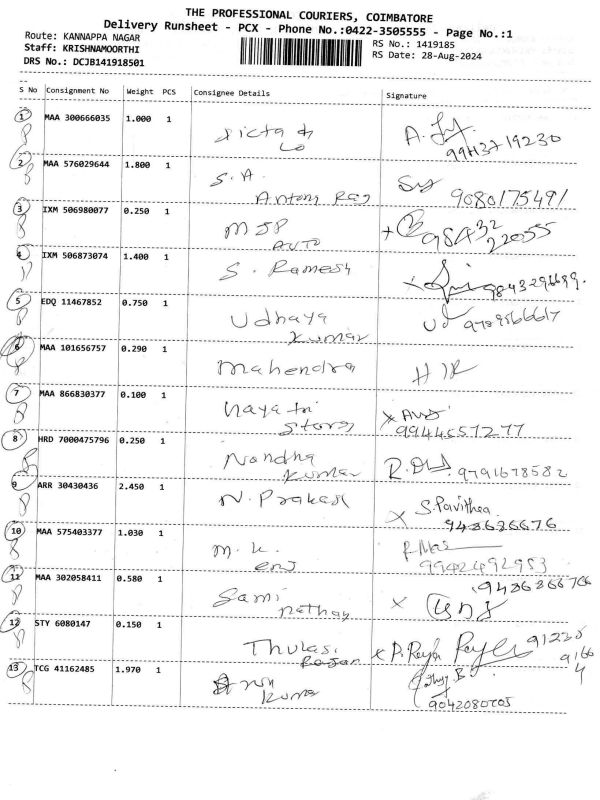 THE PROFESSIONAL COURIERS, COIMBATORE
Delivery Runsheet - PCX - Phone No.:0422-3505555 - Page No.:1
Route: KANNAPPA NAGAR
Staff: KRISHNAMOORTHI
DRS No.: DCJB141918501
RS No.: 1419185
RS Date: 28-Aug-2024
S No Consignment No Weight PCS Consignee Details Signature
1 MAA 300666035 1.000 1
2 MAA 576029644 1.800 1 S. A. Antony Raj 9080175491
3 IXM 506980077 0.250 1 MJP AUTO 98432 22055
4 IXM 506873074 1.400 1 S. Ramesh
5 EDQ 11467852 0.750 1 Udhaya Kumar
6 MAA 101656757 0.290 1 Mahendra
7 MAA 866830377 0.100 1 Stores 9944557277
8 HRD 7000475796 0.250 1 Nandha Kumar 9791678582
9 ARR 30430436 2.450 1 N. Prakash S. Pavithra 948636676
10 MAA 575403377 1.030 1 M. K. 9942492953
11 MAA 302058411 0.580 1 Sami Nathan
12 STY 6080147 0.150 1 Thulasi Rajan
13 TCG 41162485 1.970 1 Kumar 9042080705